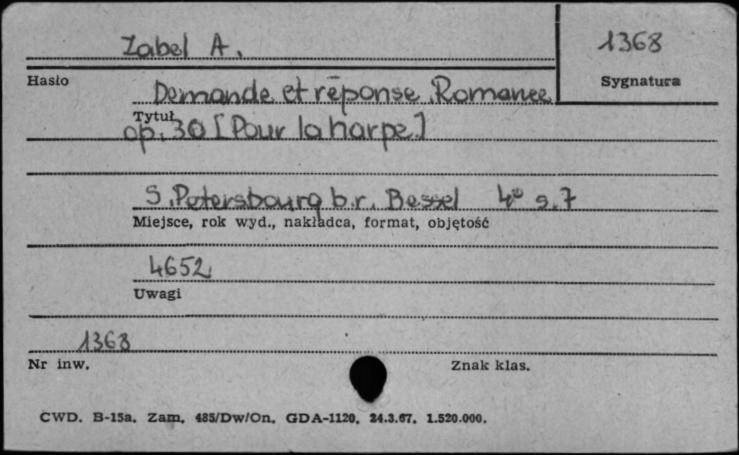 Zabel A.
1368
Hasło
Sygnatura
Demande et réponse. Romance
Tytuł
op. 30 [Pour la harpe]
S. Petersbourg b.r. Bessel 4° s. 7
Miejsce, rok wyd., nakładca, format, objętość
4652
Uwagi
1368
Nr inw.
Znak klas.
CWD. B-15a. Zam. 485/Dw/On. GDA-1120. 24.3.67. 1.520.000.